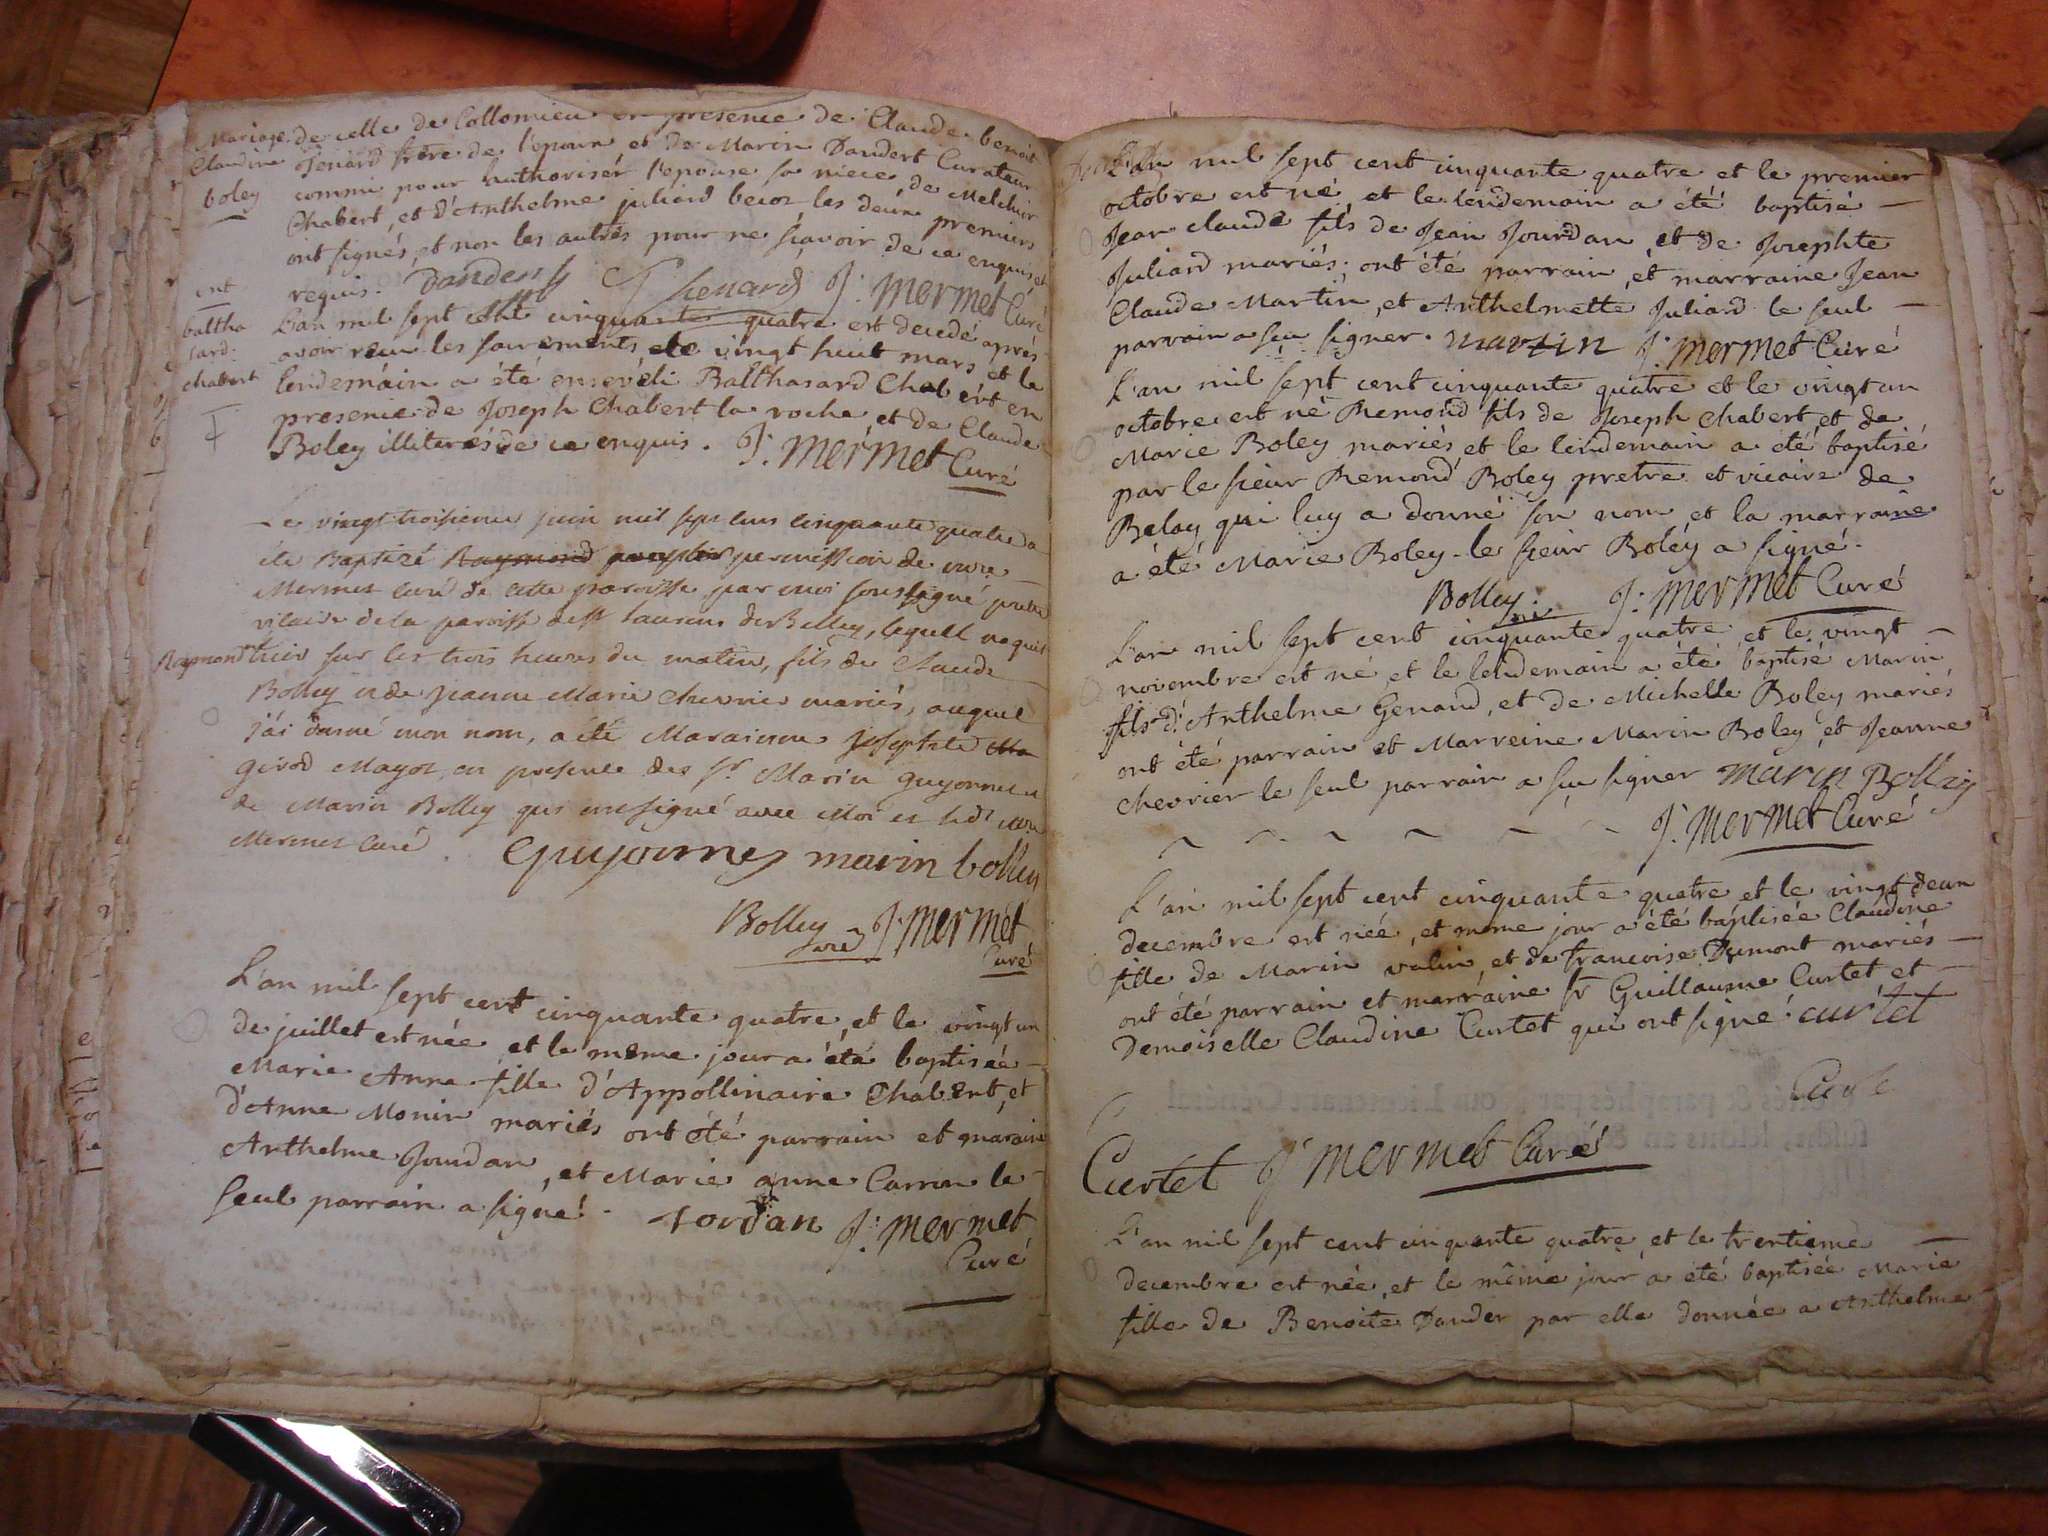 Mariage
Claudine
boley
de celle de Collomieu en presence de Claude benoit
Jenard frere de l'epoux et de Marin Dandert Curateur
commi pour authoriser l'epouse sa niece, de Melchior
Chabert, et d'Anthelme juliard becoz les deux premiers
ont signés, et non les autres pour ne sçavoir de ce enquis, et
requis. Jenard J: Mermet Curé
ent
baltha
sard:
chabert
L'an mil sept cent cinquante quatre est decedé aprés
avoir reçu les sacrements, le vingt huit mars et le
lendemain a été enseveli Balthasard Chabert en
presence de Joseph Chabert la roche et de Claude
Boley illiterés de ce enquis. J: Mermet Curé
Le vingt troisieme juin mil sept cens cinquante quatre a
été Baptizé Raymond permission de
Mermet curé de cette paroisse par moi soussigné pretre
vicaire de la paroisse de St Laurens de Belley, lequel naquit
Raymond
hier sur les trois heures du matin, fils de Claude
Bolley et de Jeanne Marie Chevrier mariés, auquel
j'ai donné mon nom, a été Maraienne Josephte Ma
Girod Mayoz, en presence des Sr Marin Guyonnet et
de Marin Bolley qui ont signé avec Moi et
Mermet Curé. Guyonnet marin bolley
Bolley vicre J: Mermet
Curé
L'an mil sept cent cinquante quatre, et le vingt un
de juillet est née et le meme jour a été baptiseé
Marie Anne fille d'Appollinaire Chabert, et
d'Anne Monin mariés ont été parrain et maraine
Anthelme Jourdan, et Marie anne Carron le
seul parrain a signé. Jordan J: Mermet
Curé
L'an mil sept cent cinquante quatre et le premier
octobre est né, et le lendemain a été baptisé
Jean claude fils de Jean Jourdan, et de Josephte
Juliard mariés; ont été parrain, et marraine Jean
Claude Martin, et Anthelmette Juliard le seul
parrain a su signer. martin J: Mermet Curé
L'an mil sept cent cinquante quatre et le vingt un
octobre est né Remond fils de Joseph Chabert, et de
Marie Boley mariés et le lendemain a été baptisé
par le sieur Remond Boley pretre et vicaire de
Belay qui luy a donné son nom et la marraine
a été Marie Boley. le sieur Boley a signé.
Bolley vi: J: Mermet Curé
L'an mil sept cent cinquante quatre et le vingt
novembre est né et le lendemain a été baptisé Marin
fils d'Anthelme Genard, et de Michelle Boley mariés
ont été parrain et Marreine Marin Boley et Jeanne
Chevrier le seul parrain a su signer Marin Bolley
J: Mermet Curé
L'an mil sept cent cinquante quatre et le vingt deux
decembre est néé, et meme jour a été baptisée Claudine
fille de Marin valin, et de francoise Dumont mariés
ont été parrain et marraine Sr Guillaume Curtet et
Demoiselle Claudine Curtet qui ont signé. curtet
Curtet J Mermet Curé
L'an mil sept cent cinquante quatre, et le trentieme
decembre est née, et le même jour a été baptisée Marie
fille de Benoite Dander par elle donnée a Anthelme